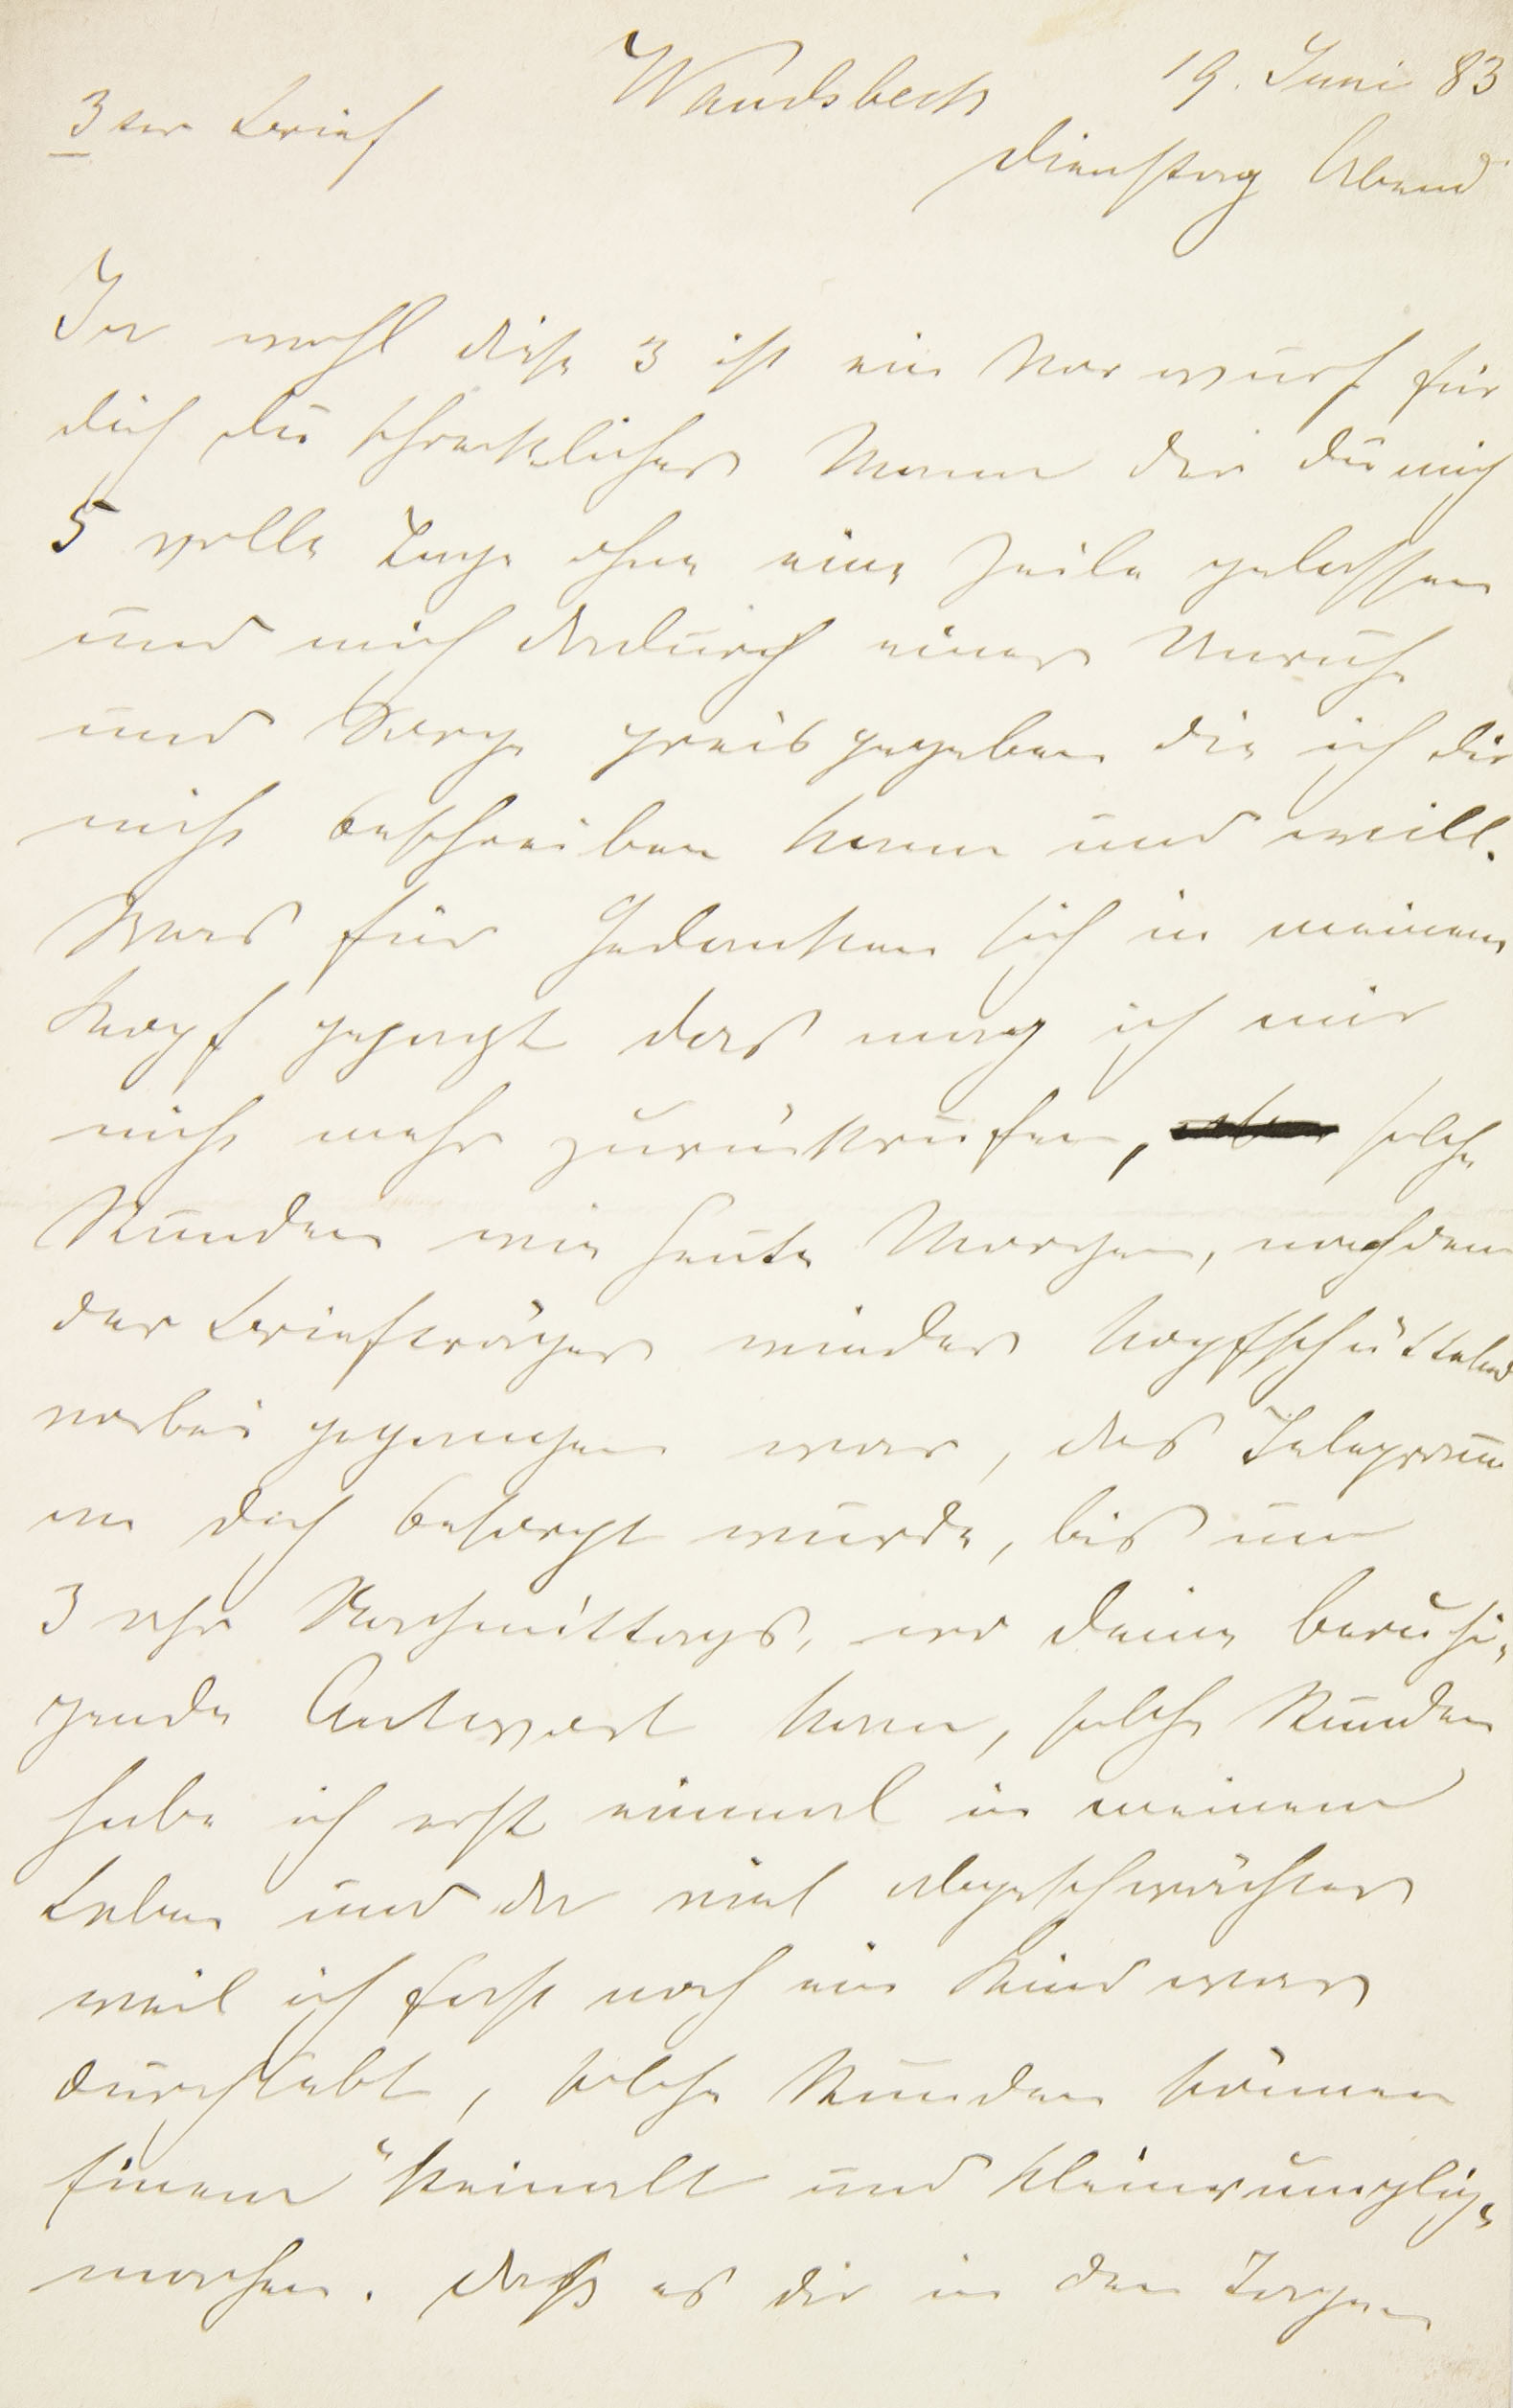 Wandsbeck 19. Juni 83
3ter Brief
Dienstag Abend
Ja wohl diese 3 ist ein Vorwurf für
dich du schrecklicher Mann der du mich
5 volle Tage ohne eine Zeile gelassen
und mich dadurch einer Unruhe
und Sorge preisgegeben die ich dir
nicht beschreiben kann und will.
Was für Gedanken sich in meinem
Kopf gejagt das mag ich mir
nicht mehr zurückrufen, solche
Stunden wie heute Morgen, nachdem
der Briefträger wieder kopfschüttelnd
vorbei gegangen war, das Telegramm
an dich besorgt wurde, bis um
3 Uhr Nachmittags, wo deine beruhi-
gende Antwort kam, solche Stunden
habe ich erst einmal in meinem
Leben und da viel abgeschwächter
weil ich fast noch ein Kind war
durchlebt, solche Stunden können
Einem "steinalt und kleinrunzlig"
machen. Daß es dir in den Tagen